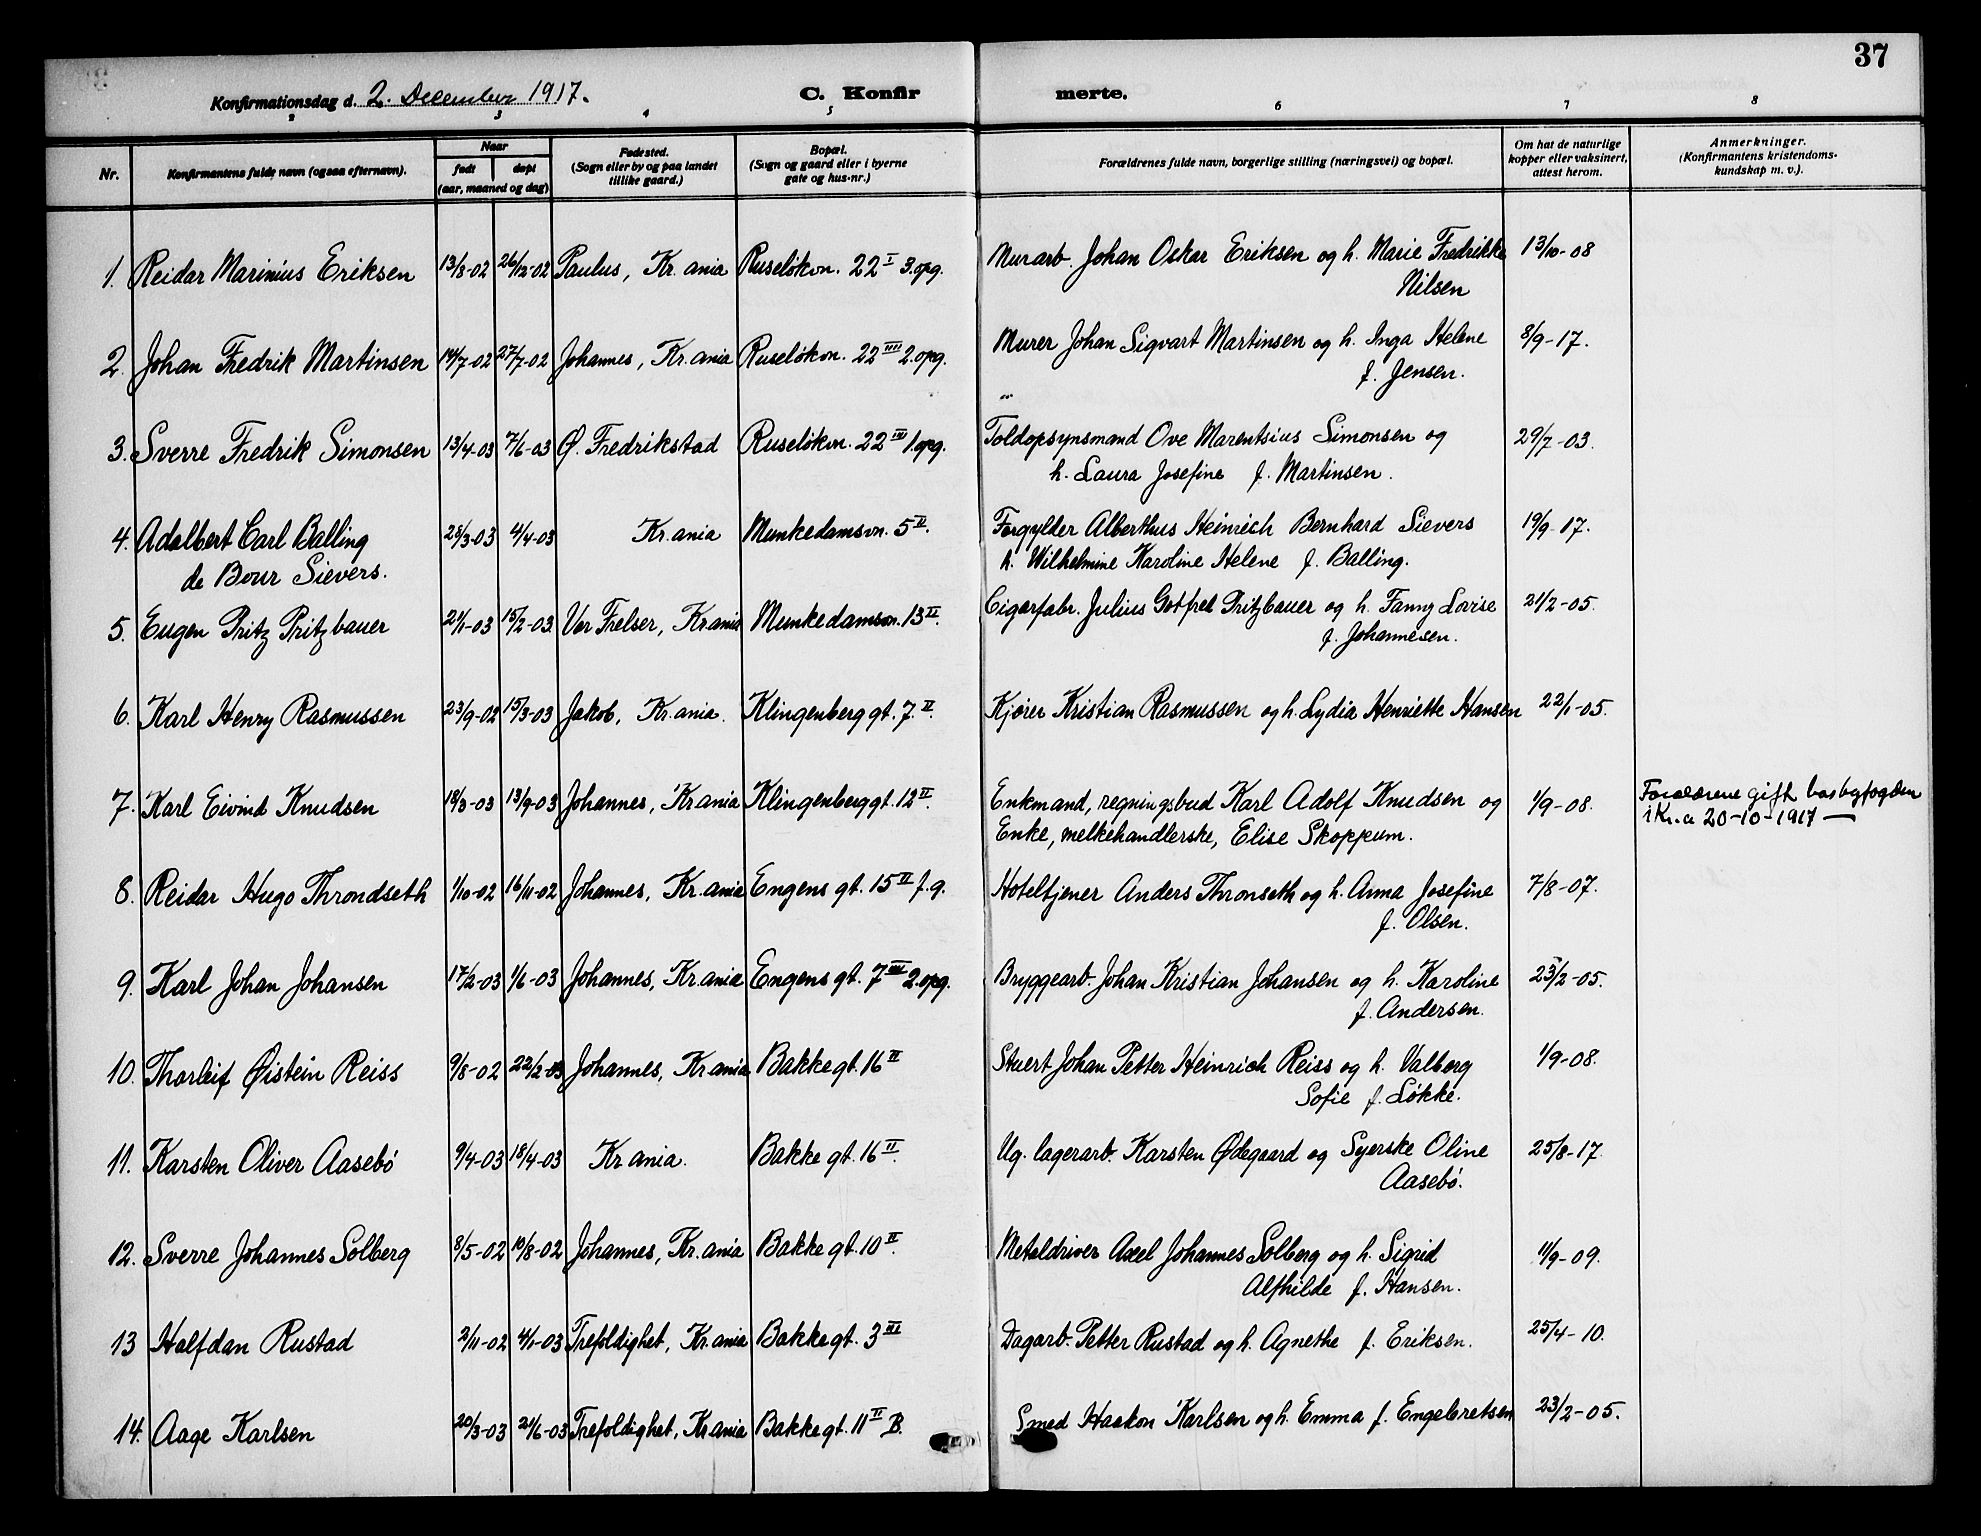 37
Konfirmationsdag d. 2. December 1917. C. Konfirmerte.
2 3 4 5 6 7 8
Nr. Konfirmantens fulde navn (ogsaa efternavn). Naar født døpt (aar, maaned og dag) Fødested. (Sogn eller by og paa landet tillike gaard.) Bopæl. (Sogn og gaard eller i byerne gate og hus-nr.) Forældrenes fulde navn, borgerlige stilling (næringsvei) og bopæl. Om hat de naturlige kopper eller vaksinert, attest herom. Anmerkninger. (Konfirmantens kristendoms-kundskap m. v.).
1. Reidar Marinius Eriksen 13/8-02 26/12-02 Paulus, Kr.ania Ruseløkvn. 22 I 3.opg. Murarb. Johan Oskar Eriksen og h. Marie Fredrikke 13/10-08
Nilsen
2. Johan Fredrik Martinsen 14/7-02 27/7-02 Johannes, Kr.ania Ruseløkvn. 22 IIII 2.opg. Murer Johan Sigvart Martinsen og h. Inga Helene 8/9-17.
f. Jensen.
3. Sverre Fredrik Simonsen 13/4-03 7/6-03 Ø. Fredrikstad Ruseløkvn. 22 III 1.opg. Toldopsynsmand Ove Marentsius Simonsen og 29/7-03.
h. Laura Josefine f. Martinsen.
4. Adalbert Carl Balling 28/3-03 4/4-03 Kr.ania Munkedamsvn. 5 II. Forgylder Alberthus Heinrich Bernhard Sievers 19/9-17.
de Bour Sievers. h. Wilhelmine Karoline Helene f. Balling.
5. Eugen Pritz Pritzbauer 21/1-03 15/2-03 Vor Frelser, Kr.ania Munkedamsvn. 13 II. Cigarfabr. Julius Gotfred Pritzbauer og h. Fanny Lovise 21/2-05.
f. Johannesen.
6. Karl Henry Rasmussen 23/9-02 15/3-03 Jakob, Kr.ania. Klingenberggt. 7. II. Kjører Kristian Rasmussen og h. Lydia Henriette Hansen 22/1-05.
7. Karl Eivind Knudsen 18/3-03 13/9-03 Johannes, Kr.ania Klingenberggt. 12 II. Enkmand, regningsbud Karl Adolf Knudsen og 1/9-08. Forældrene gift hos byfogden
Enke, melkehandlerske, Elise Skoppum. i Kr.a 20-10-1917 —
8. Reidar Hugo Throndseth 1/10-02 16/11-02 Johannes, Kr.ania Engens gt. 15 II f.g. Hoteltjener Anders Thronseth og h. Anna Josefine 7/8-07.
f. Olsen.
9. Karl Johan Johansen 17/2-03 1/6-03 Johannes, Kr.ania Engens gt. 7 III 2.opg. Bryggearb. Johan Kristian Johansen og h. Karoline 23/2-05.
f. Andersen.
10. Thorleif Øistein Reiss 9/8-02 22/2-03 Johannes, Kr.ania Bakkegt. 16 II Stuert Johan Petter Heinrich Reiss og h. Valborg 1/9-08.
Sofie f. Løkke.
11. Karsten Oliver Aasebø 9/4-03 18/4-03 Kr.ania. Bakkegt. 16 II. Ug. lagerarb. Karsten Ødegaard og Syerske Oline 25/8-17.
Aasebø.
12. Sverre Johannes Solberg 8/5-02 10/8-02 Johannes, Kr.ania Bakkegt. 10 II. Metaldriver Axel Johannes Solberg og h. Sigrid 11/9-09.
Alfhilde f. Hansen.
13 Halfdan Rustad 2/11-02 4/1-03 Trefoldighet, Kr.ania Bakkegt. 3 III Dagarb. Petter Rustad og h. Agnethe f. Eriksen. 25/4-10.
14. Aage Karlsen 20/3-03 21/6-03 Trefoldighet, Kr.ania Bakkegt. 11 II B. Smed Haakon Karlsen og h. Emma f. Engebretsen 23/2-05.